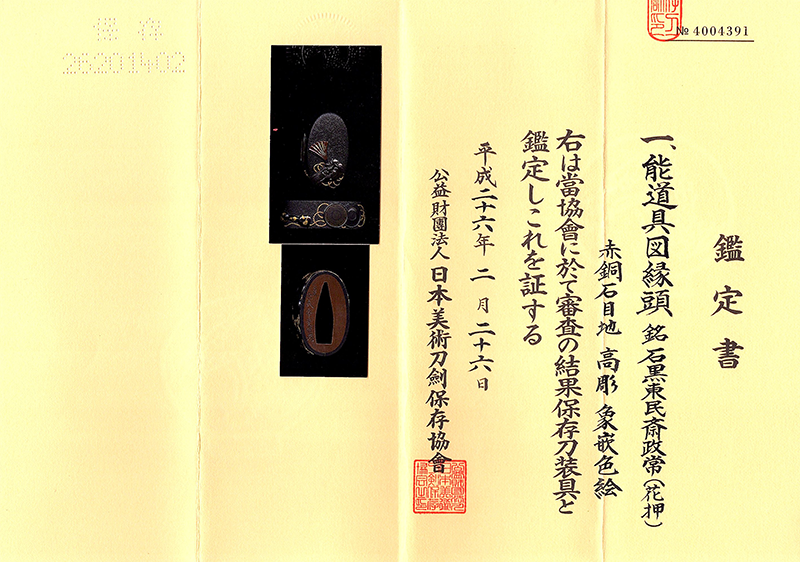 № 4004391
鑑定書
一、能道具図縁頭 銘 石黒東民斎政常(花押)
赤銅石目地 高彫 象嵌色絵
右は當協會に於て審査の結果保存刀装具と
鑑定しこれを証する
平成二十六年 二月 二十六日
公益財團法人 日本美術刀劍保存協會
保存
26201402